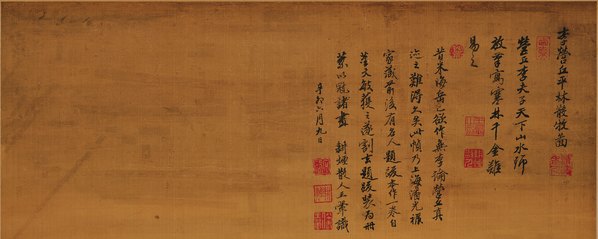 李營丘平林散牧圖
營丘李夫子天下山水師
放筆寫寒林千金難
易之
昔米海岳已欲作無李論營丘真
迹之難得久矣此幀乃上海潘光祿
家藏前後有名人題跋本作一卷自
董文敏獲之遂割去題跋裝為冊
以冠諸畫 耕煙散人王翬識
辛卯六月九日